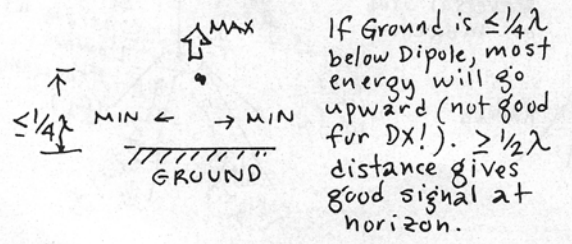 MAX
≤1/4λ
MIN ← → MIN
GROUND
If Ground is ≤1/4λ
below Dipole, most
energy will go
upward (not good
fur DX!). ≥1/2λ
distance gives
good signal at
horizon.